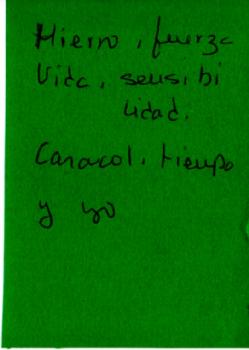 Hierro, fuerza
Vida, sensibi
lidad.
Caracol, tiempo
y yo